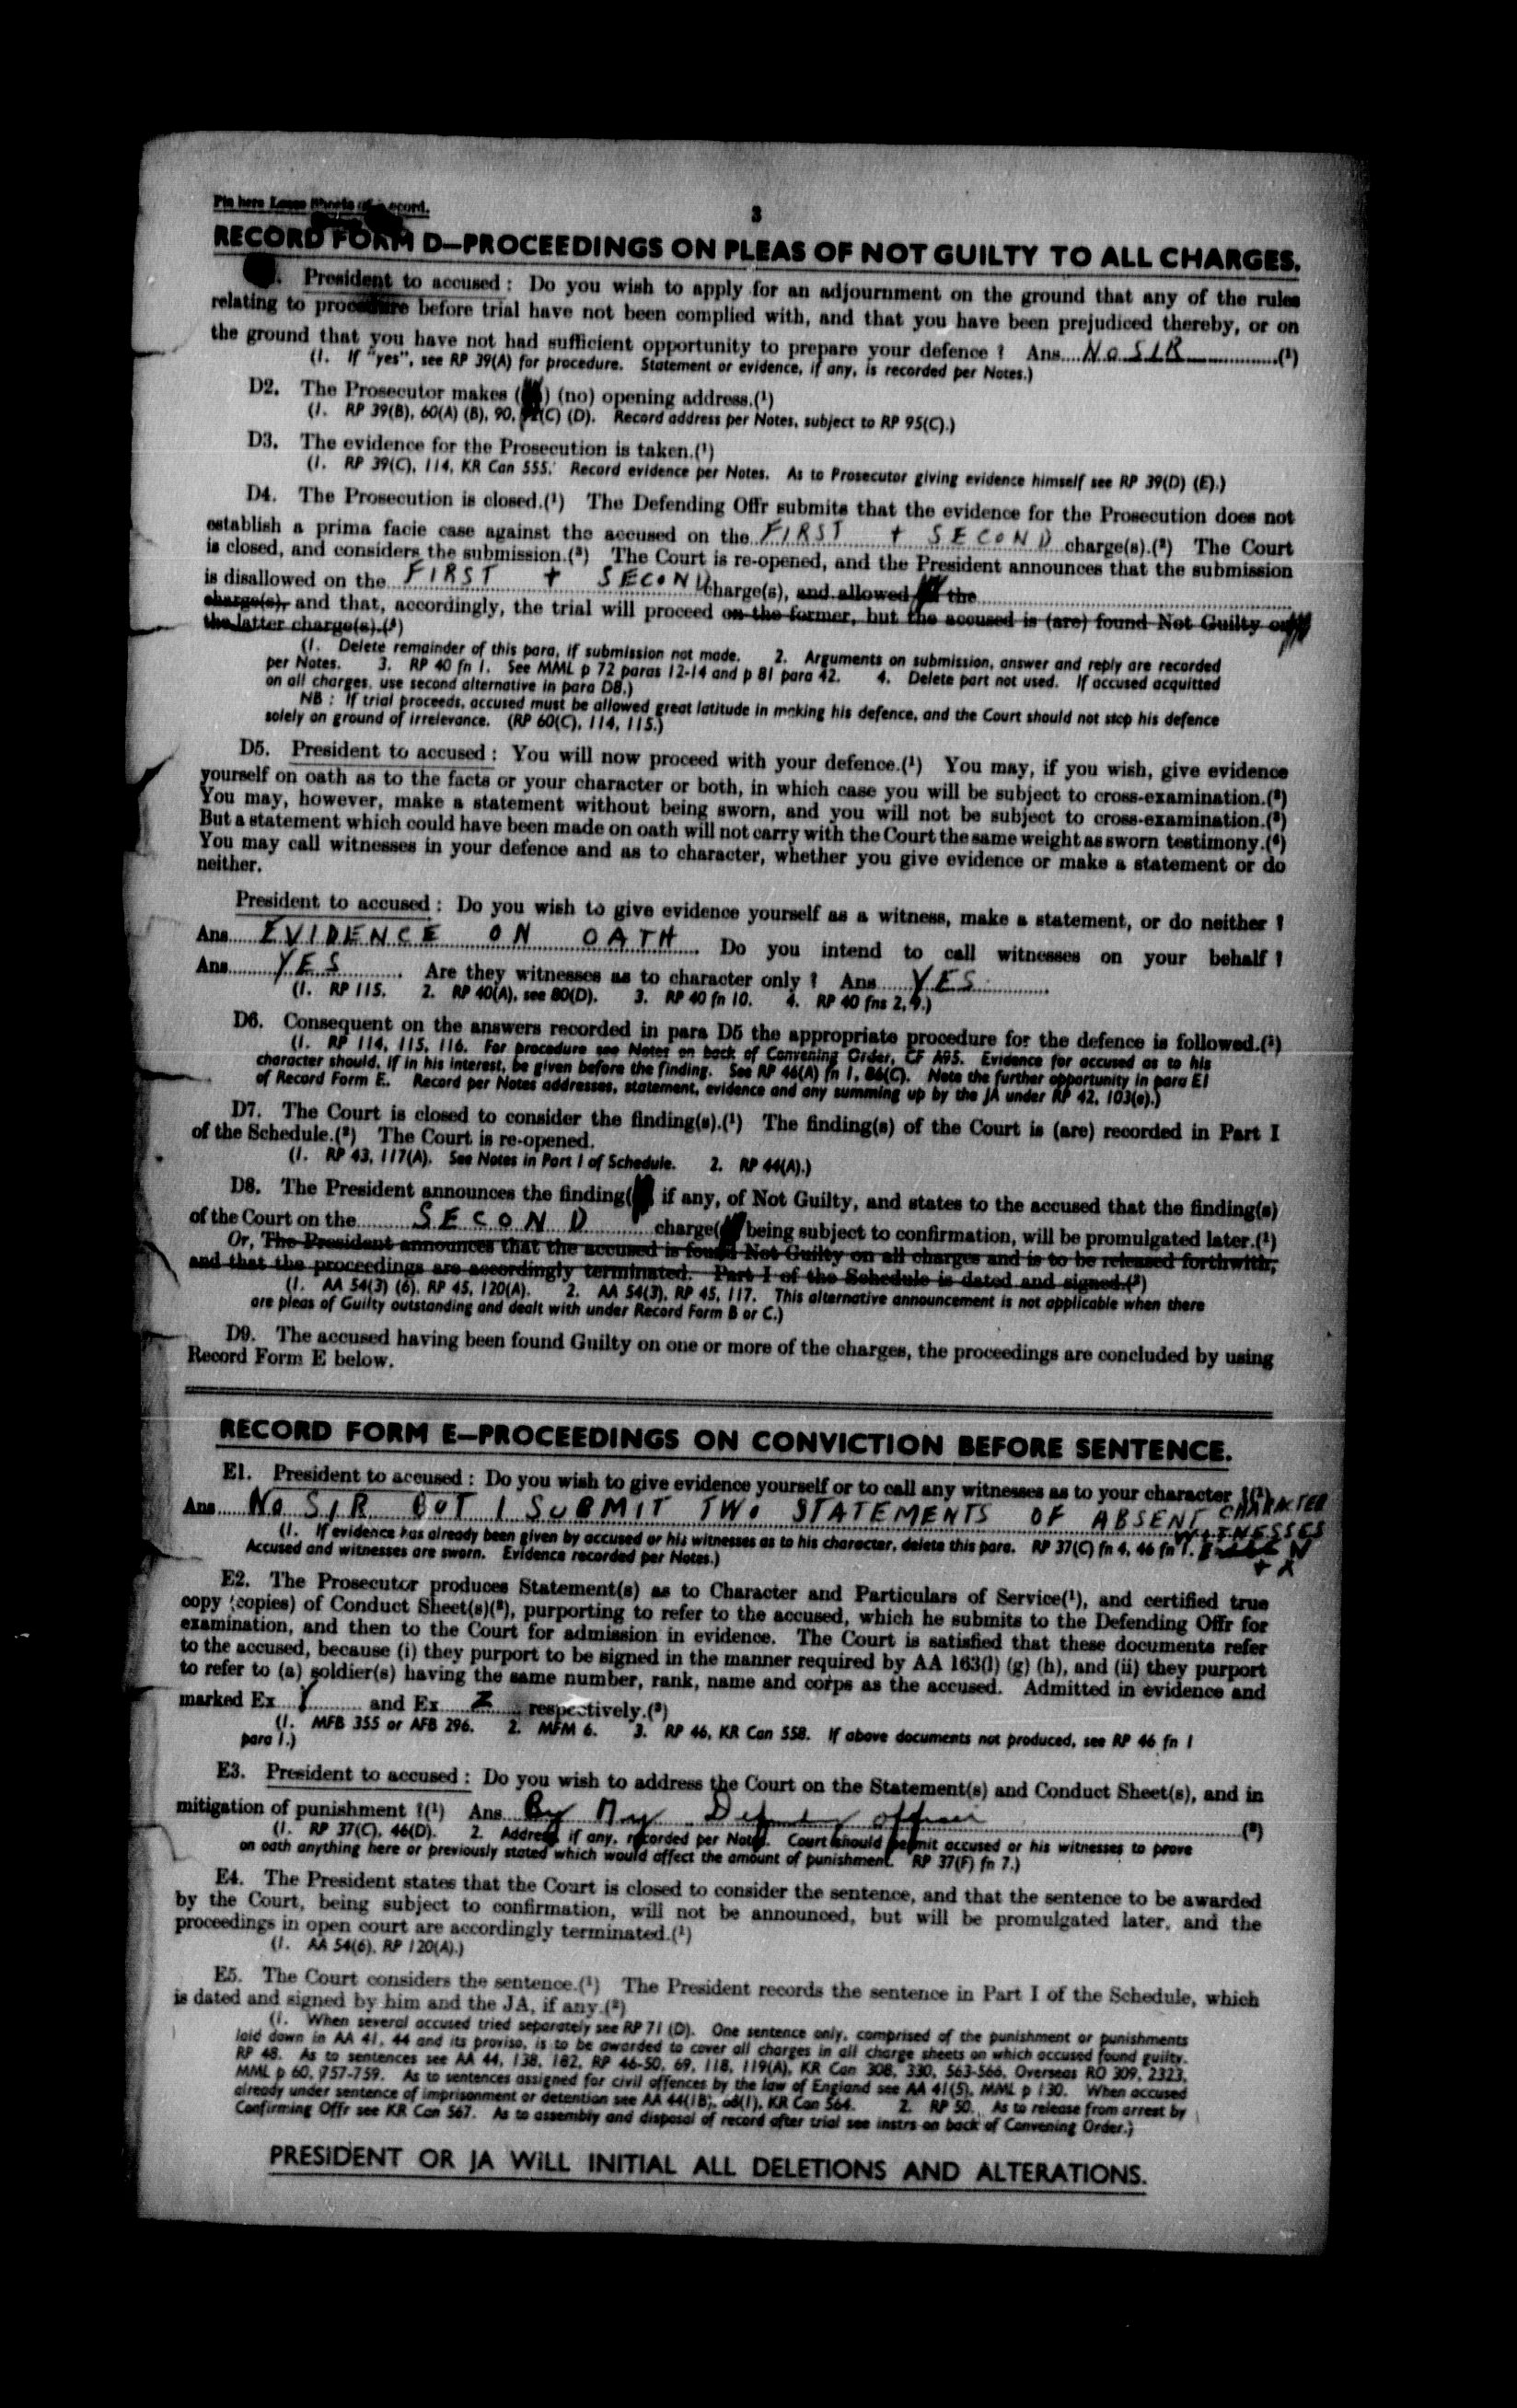 Pin here Loose Sheets of Record.
3
RECORD FORM D—PROCEEDINGS ON PLEAS OF NOT GUILTY TO ALL CHARGES.
President to accused : Do you wish to apply for an adjournment on the ground that any of the rules
relating to procedure before trial have not been complied with, and that you have been prejudiced thereby, or on
the ground that you have not had sufficient opportunity to prepare your defence ? Ans....No SIR..............(¹)
(1. If "yes", see RP 39(A) for procedure. Statement or evidence, if any, is recorded per Notes.)
D2. The Prosecutor makes ( ) (no) opening address.(¹)
(1. RP 39(B), 60(A) (B), 90, (C) (D). Record address per Notes, subject to RP 95(C).)
D3. The evidence for the Prosecution is taken.(¹)
(1. RP 39(C), 114, KR Can 555. Record evidence per Notes. As to Prosecutor giving evidence himself see RP 39(D) (E).)
D4. The Prosecution is closed.(¹) The Defending Offr submits that the evidence for the Prosecution does not
establish a prima facie case against the accused on the FIRST + SECOND charge(s).(²) The Court
is closed, and considers the submission.(³) The Court is re-opened, and the President announces that the submission
is disallowed on the FIRST + SECOND charge(s), and allowed the
charge(s), and that, accordingly, the trial will proceed on the former, but the accused is (are) found Not Guilty on
the latter charge(s).(⁴)
(1. Delete remainder of this para, if submission not made. 2. Arguments on submission, answer and reply are recorded
per Notes. 3. RP 40 fn 1. See MML p 72 paras 12-14 and p 81 para 42. 4. Delete part not used. If accused acquitted
on all charges, use second alternative in para D8.)
NB : If trial proceeds, accused must be allowed great latitude in making his defence, and the Court should not stop his defence
solely on ground of irrelevance. (RP 60(C), 114, 115.)
D5. President to accused : You will now proceed with your defence.(¹) You may, if you wish, give evidence
yourself on oath as to the facts or your character or both, in which case you will be subject to cross-examination.(²)
You may, however, make a statement without being sworn, and you will not be subject to cross-examination.(³)
But a statement which could have been made on oath will not carry with the Court the same weight as sworn testimony.(⁴)
You may call witnesses in your defence and as to character, whether you give evidence or make a statement or do
neither.
President to accused : Do you wish to give evidence yourself as a witness, make a statement, or do neither ?
Ans......EVIDENCE ON OATH...... Do you intend to call witnesses on your behalf ?
Ans..........YES............ Are they witnesses as to character only ? Ans......YES............
(1. RP 115. 2. RP 40(A), see 80(D). 3. RP 40 fn 10. 4. RP 40 fns 2, 9.)
D6. Consequent on the answers recorded in para D5 the appropriate procedure for the defence is followed.(¹)
(1. RP 114, 115, 116. For procedure see Notes on back of Convening Order, CF A95. Evidence for accused as to his
character should, if in his interest, be given before the finding. See RP 46(A) fn 1, 86(C). Note the further opportunity in para E1
of Record Form E. Record per Notes addresses, statement, evidence and any summing up by the JA under RP 42, 103(e).)
D7. The Court is closed to consider the finding(s).(¹) The finding(s) of the Court is (are) recorded in Part I
of the Schedule.(²) The Court is re-opened.
(1. RP 43, 117(A). See Notes in Part I of Schedule. 2. RP 44(A).)
D8. The President announces the finding( if any, of Not Guilty, and states to the accused that the finding(s)
of the Court on the..........SECOND..........charge( being subject to confirmation, will be promulgated later.(¹)
Or, The President announces that the accused is found Not Guilty on all charges and is to be released forthwith,
and that the proceedings are accordingly terminated. Part I of the Schedule is dated and signed.(²)
(1. AA 54(3) (6), RP 45, 120(A). 2. AA 54(3), RP 45, 117. This alternative announcement is not applicable when there
are pleas of Guilty outstanding and dealt with under Record Form B or C.)
D9. The accused having been found Guilty on one or more of the charges, the proceedings are concluded by using
Record Form E below.
RECORD FORM E—PROCEEDINGS ON CONVICTION BEFORE SENTENCE.
E1. President to accused : Do you wish to give evidence yourself or to call any witnesses as to your character ?(¹)
Ans......No SIR BUT I SUBMIT TWO STATEMENTS OF ABSENT CHARACTER
WITNESSES
(1. If evidence has already been given by accused or his witnesses as to his character, delete this para. RP 37(C) fn 4, 46 fn 1.
W + X
Accused and witnesses are sworn. Evidence recorded per Notes.)
E2. The Prosecutor produces Statement(s) as to Character and Particulars of Service(¹), and certified true
copy (copies) of Conduct Sheet(s)(²), purporting to refer to the accused, which he submits to the Defending Offr for
examination, and then to the Court for admission in evidence. The Court is satisfied that these documents refer
to the accused, because (i) they purport to be signed in the manner required by AA 163(l) (g) (h), and (ii) they purport
to refer to (a) soldier(s) having the same number, rank, name and corps as the accused. Admitted in evidence and
marked Ex....Y........ and Ex....Z..... respectively.(³)
(1. MFB 355 or AFB 296. 2. MFM 6. 3. RP 46, KR Can 558. If above documents not produced, see RP 46 fn 1
para 1.)
E3. President to accused : Do you wish to address the Court on the Statement(s) and Conduct Sheet(s), and in
mitigation of punishment ?(¹) Ans....By My Defending officer..............(²)
(1. RP 37(C), 46(D). 2. Address, if any, recorded per Notes. Court should permit accused or his witnesses to prove
on oath anything here or previously stated which would affect the amount of punishment. RP 37(F) fn 7.)
E4. The President states that the Court is closed to consider the sentence, and that the sentence to be awarded
by the Court, being subject to confirmation, will not be announced, but will be promulgated later, and the
proceedings in open court are accordingly terminated.(¹)
(1. AA 54(6), RP 120(A).)
E5. The Court considers the sentence.(¹) The President records the sentence in Part I of the Schedule, which
is dated and signed by him and the JA, if any.(²)
(1. When several accused tried separately see RP 71 (D). One sentence only, comprised of the punishment or punishments
laid down in AA 41, 44 and its proviso, is to be awarded to cover all charges in all charge sheets on which accused found guilty.
RP 48. As to sentences see AA 44, 138, 182, RP 46-50, 69, 118, 119(A), KR Can 308, 330, 563-566, Overseas RO 309, 2323,
MML p 60, 757-759. As to sentences assigned for civil offences by the law of England see AA 41(5), MML p 130. When accused
already under sentence of imprisonment or detention see AA 44(1B), 68(1), KR Can 564. 2. RP 50. As to release from arrest by
Confirming Offr see KR Can 567. As to assembly and disposal of record after trial see instrs on back of Convening Order.)
PRESIDENT OR JA WILL INITIAL ALL DELETIONS AND ALTERATIONS.